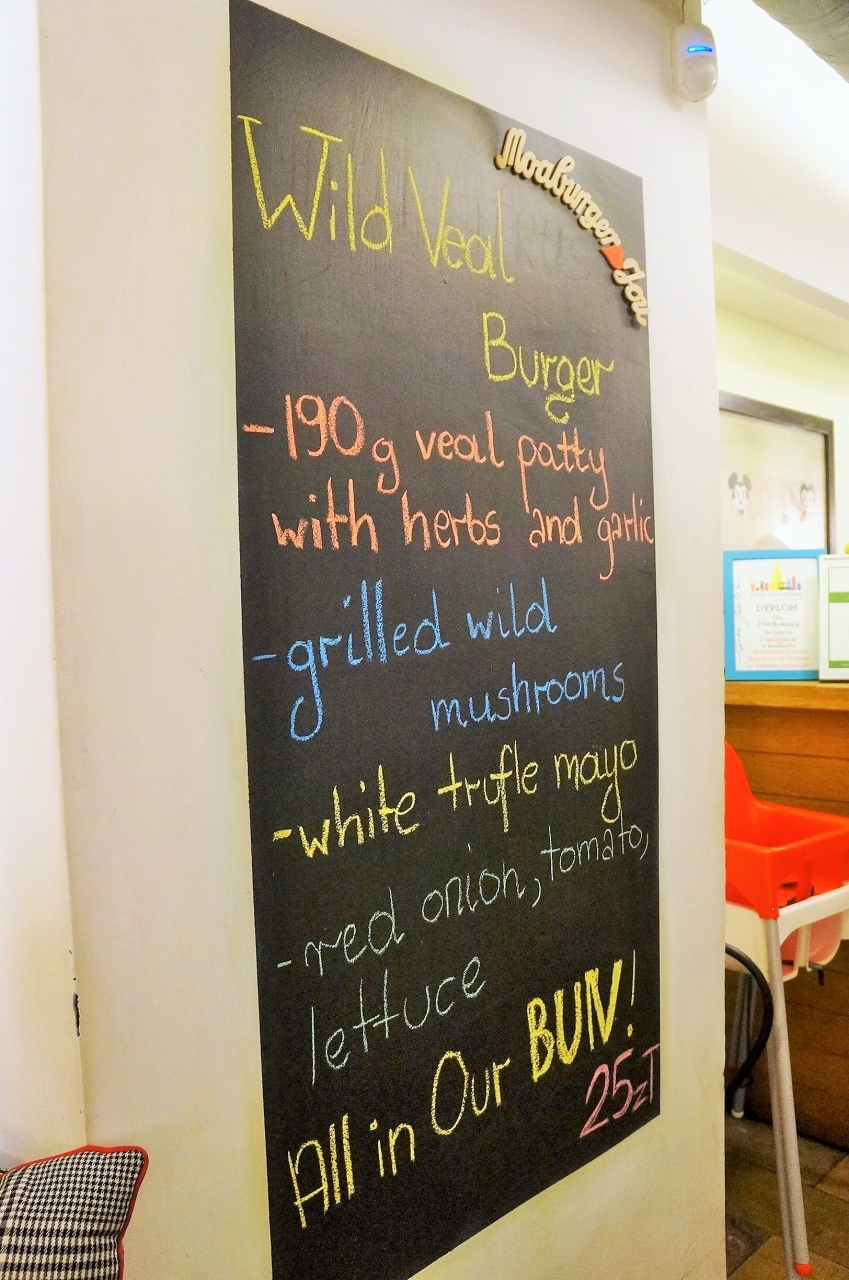 Wild Veal
Burger
Moaburger You
-190g veal patty
with herbs and garlic
-grilled wild
mushrooms
-white trufle mayo
-red onion, tomato,
lettuce
All in Our BUN!
25zł
DYPLOM